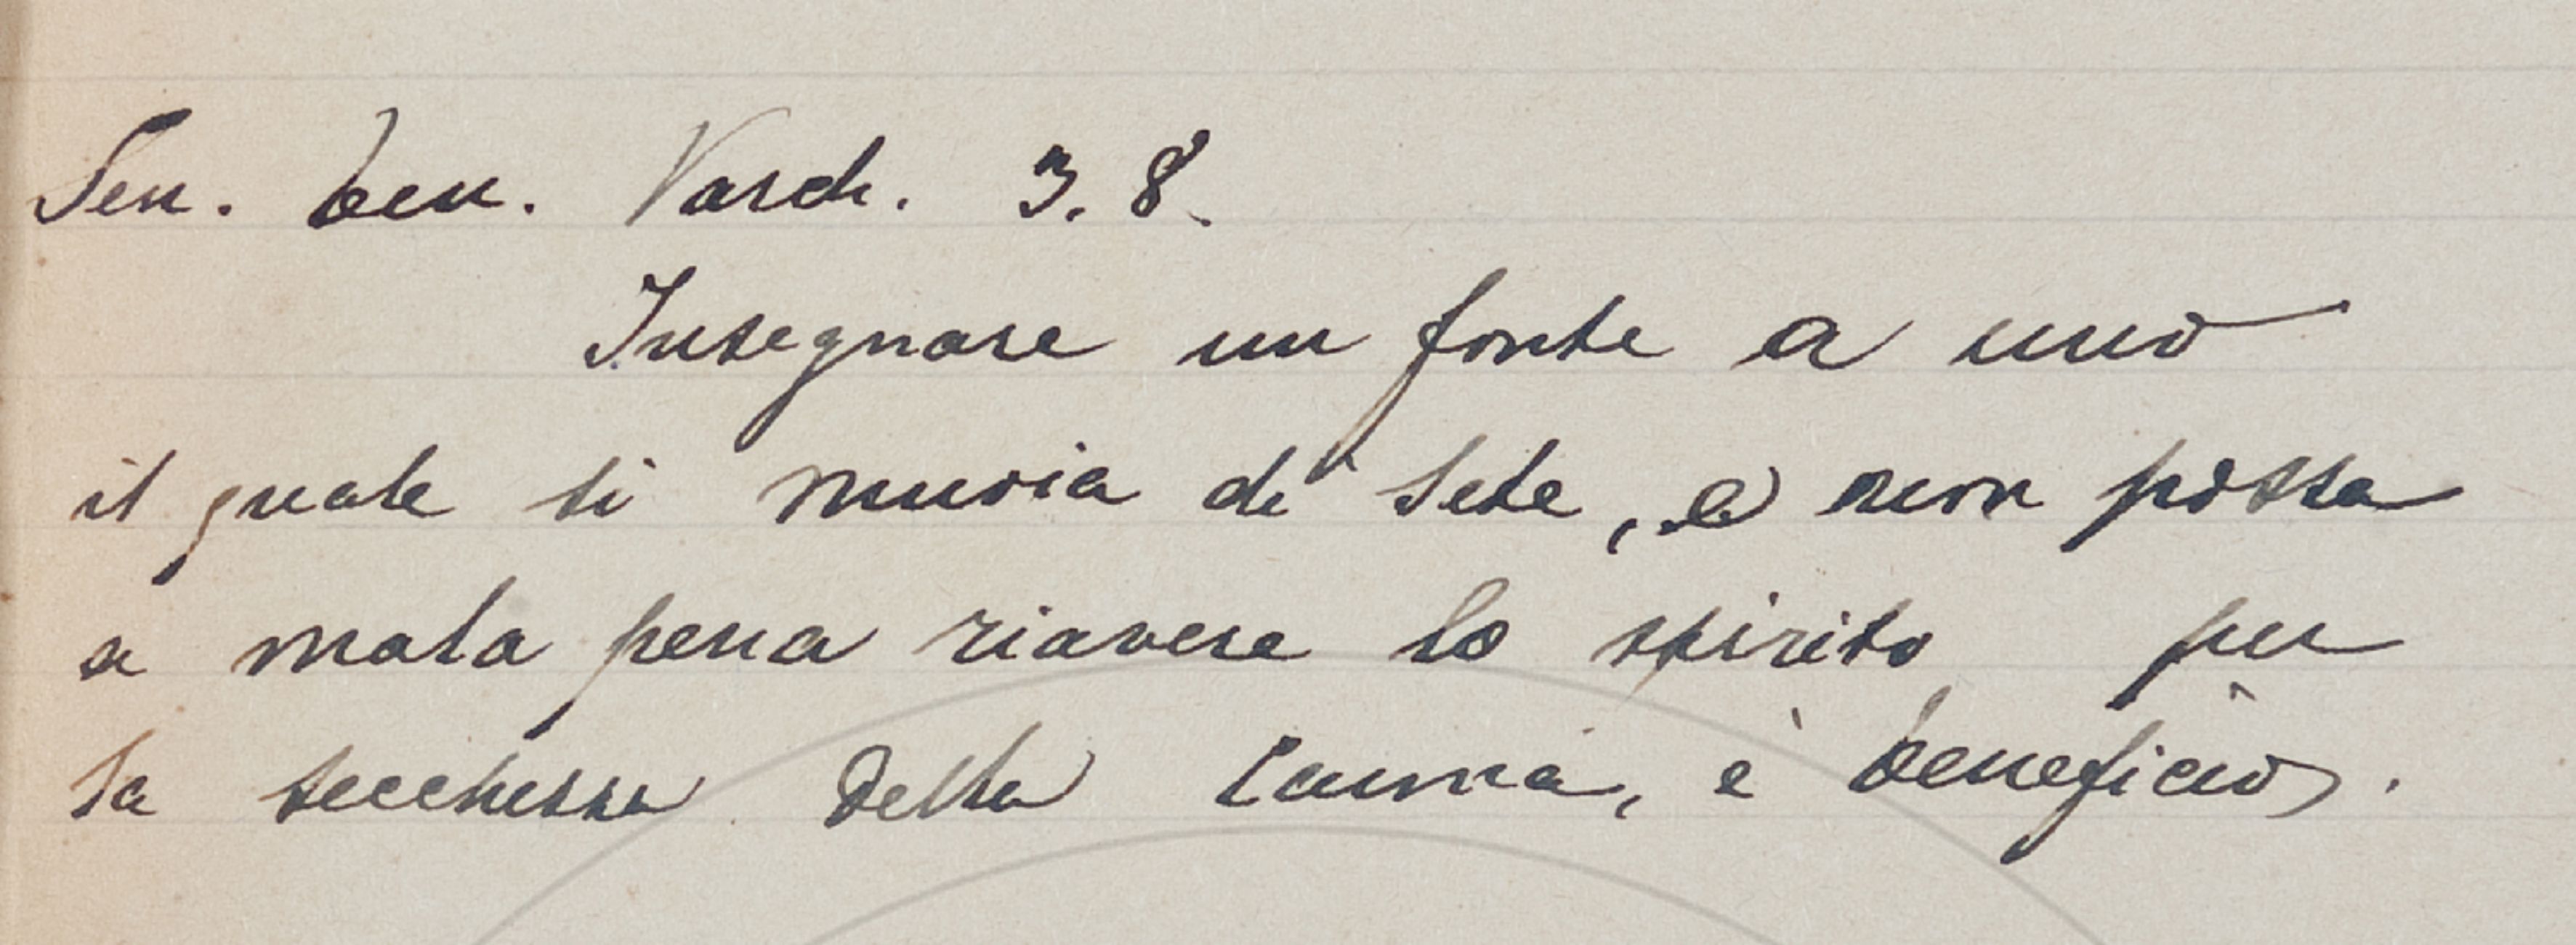 Sen. ben. Varch. 3. 8.
Insegnare un fonte a uno
il quale si muoia di sete, e non possa
a mala pena riavere lo spirito per
la secchezza della canna, è beneficio.